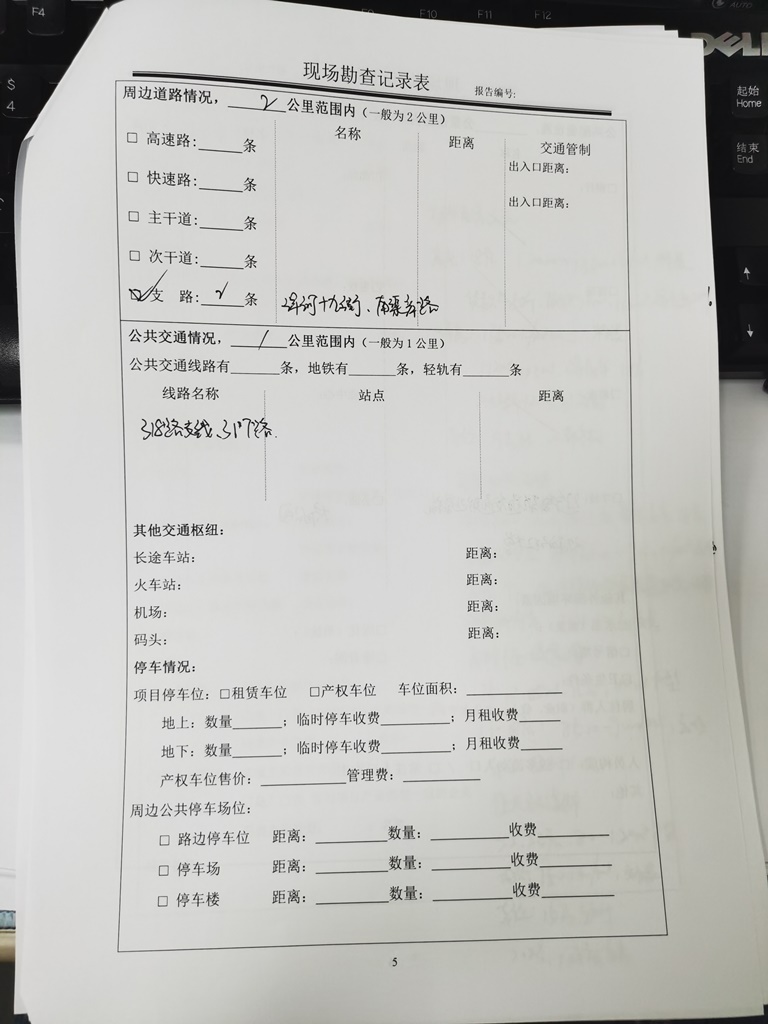 F4
F9
F10
F11
F12
AUTO
$
4
DELL
起始
Home
结束
End
现场勘查记录表
报告编号:
周边道路情况，2公里范围内（一般为2公里）
名称 距离 交通管制
□ 高速路:______条 出入口距离:
□ 快速路:______条 出入口距离:
□ 主干道:______条
□ 次干道:______条
☑ 支 路:2条 十九街、路
公共交通情况，1公里范围内（一般为1公里）
公共交通线路有______条，地铁有______条，轻轨有______条
线路名称 站点 距离
318路支线、317路.
其他交通枢纽:
长途车站: 距离:
火车站: 距离:
机场: 距离:
码头: 距离:
停车情况:
项目停车位: □租赁车位 □产权车位 车位面积: ____________
地上: 数量______; 临时停车收费________; 月租收费_____
地下: 数量______; 临时停车收费________; 月租收费_____
产权车位售价: __________管理费: _________
周边公共停车场位:
□ 路边停车位 距离: _________数量: _________收费_________
□ 停车场 距离: _________数量: _________收费_________
□ 停车楼 距离: _________数量: _________收费_________
5